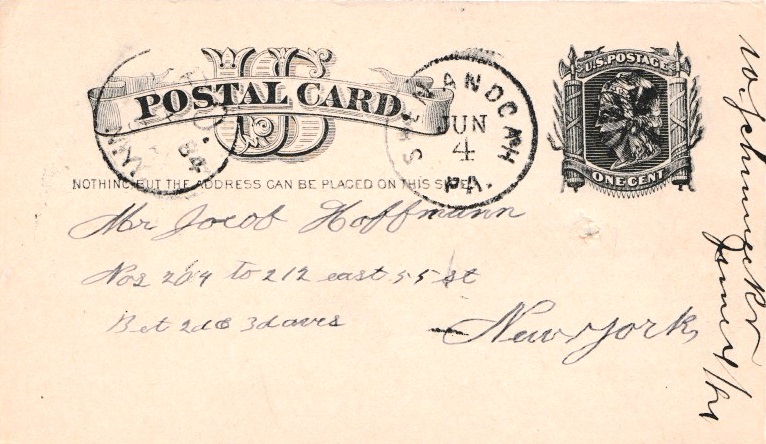 US
POSTAL CARD
84
SHENANDOAH
JUN
4
PA.
U.S. POSTAGE
ONE CENT
NOTHING BUT THE ADDRESS CAN BE PLACED ON THIS SIDE
Mr Jacob Hoffmann
Nos 204 to 212 east 55 st
Bet 2d & 3d aves
New York
June 4/84